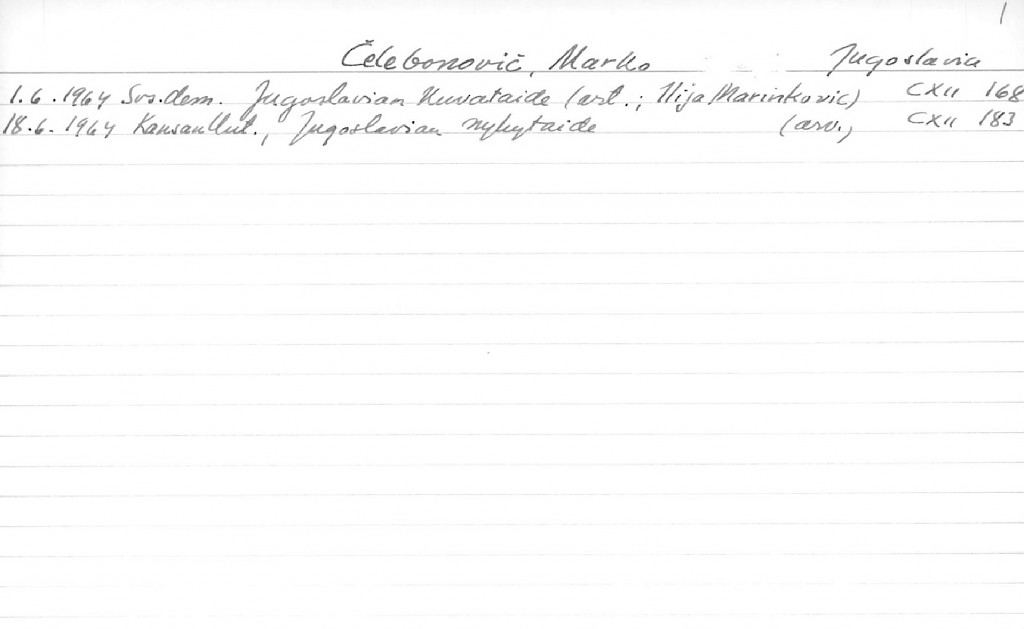 1
Čelebonovič, Marko Jugoslavia
1.6.1964 Sos.dem. Jugoslavian Kuvataide (art.; Ilija Marinkovic) CXII 168
18.6.1964 Kansan Uut., Jugoslavian nykytaide (arv.) CXII 183